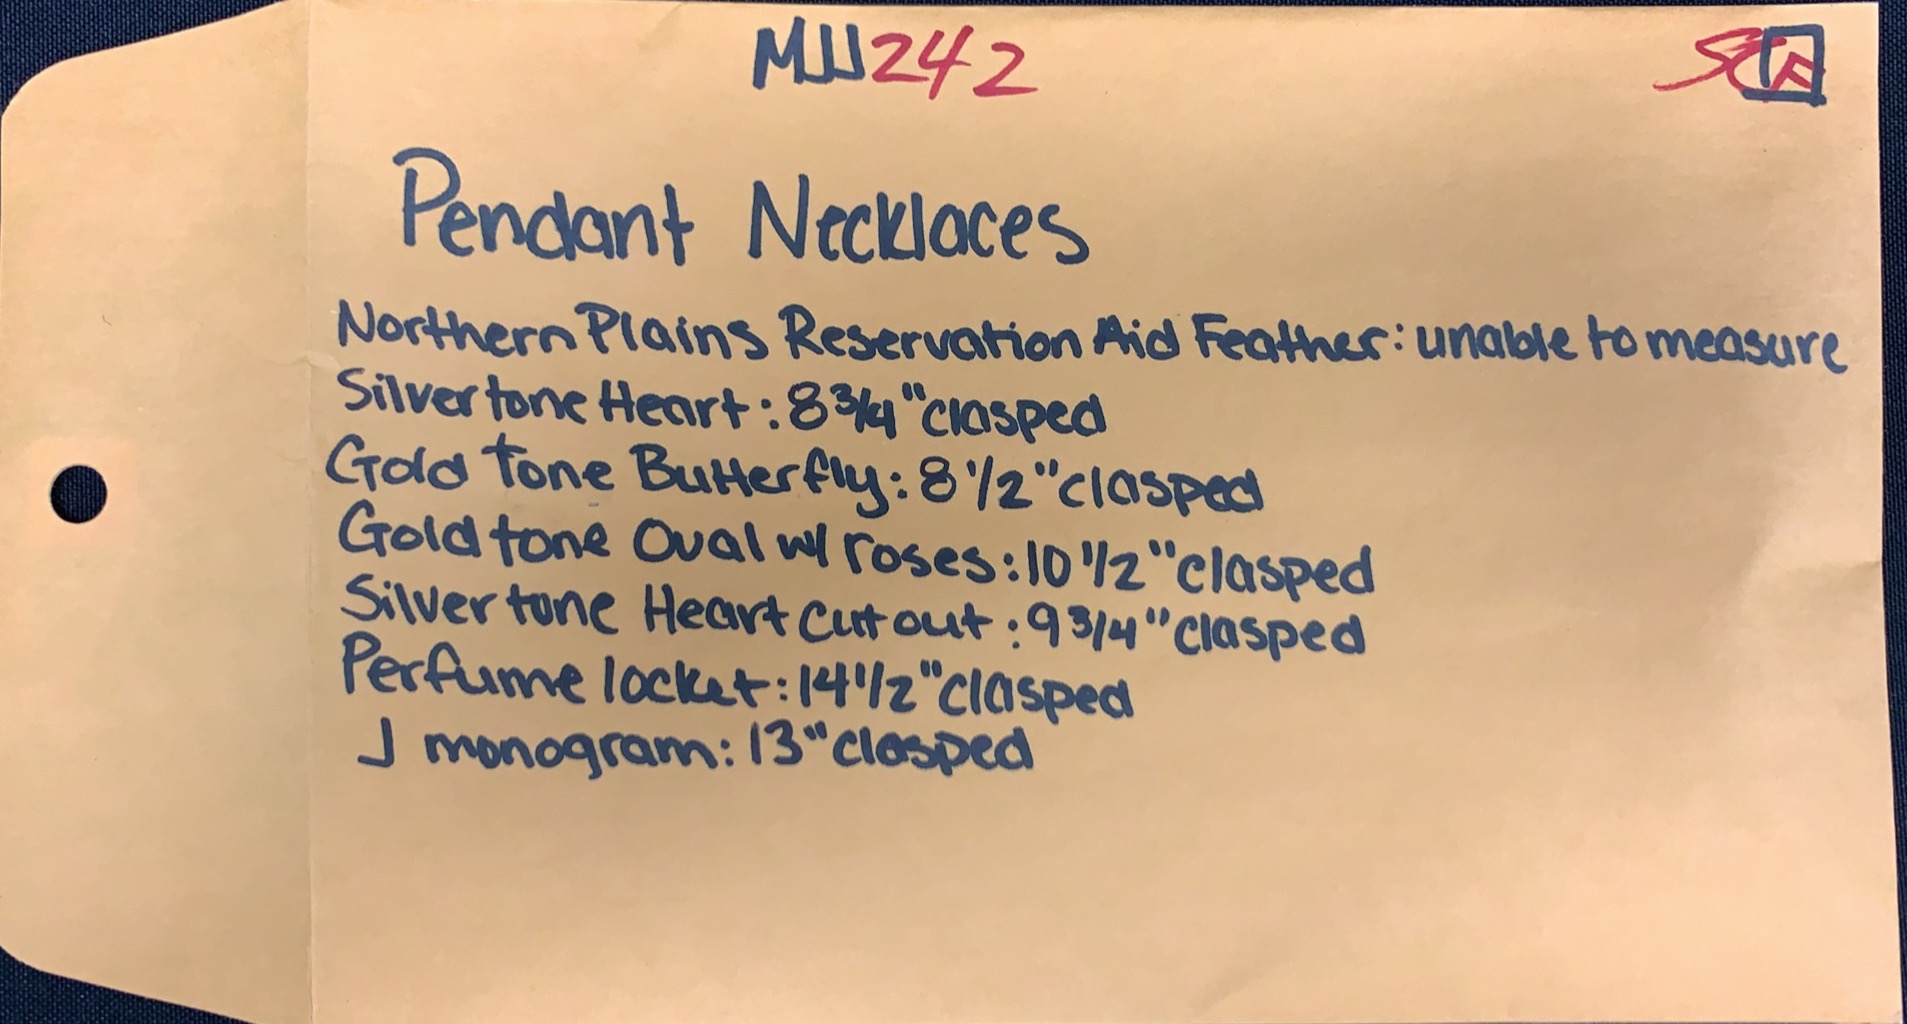 MJJ242
Pendant Necklaces
Northern Plains Reservation Aid Feather: unable to measure
Silver tone Heart: 8 3/4" clasped
Gold tone Butterfly: 8 1/2" clasped
Gold tone Oval w/ roses: 10 1/2" clasped
Silver tone Heart cut out: 9 3/4" clasped
Perfume locket: 14 1/2" clasped
J monogram: 13" clasped